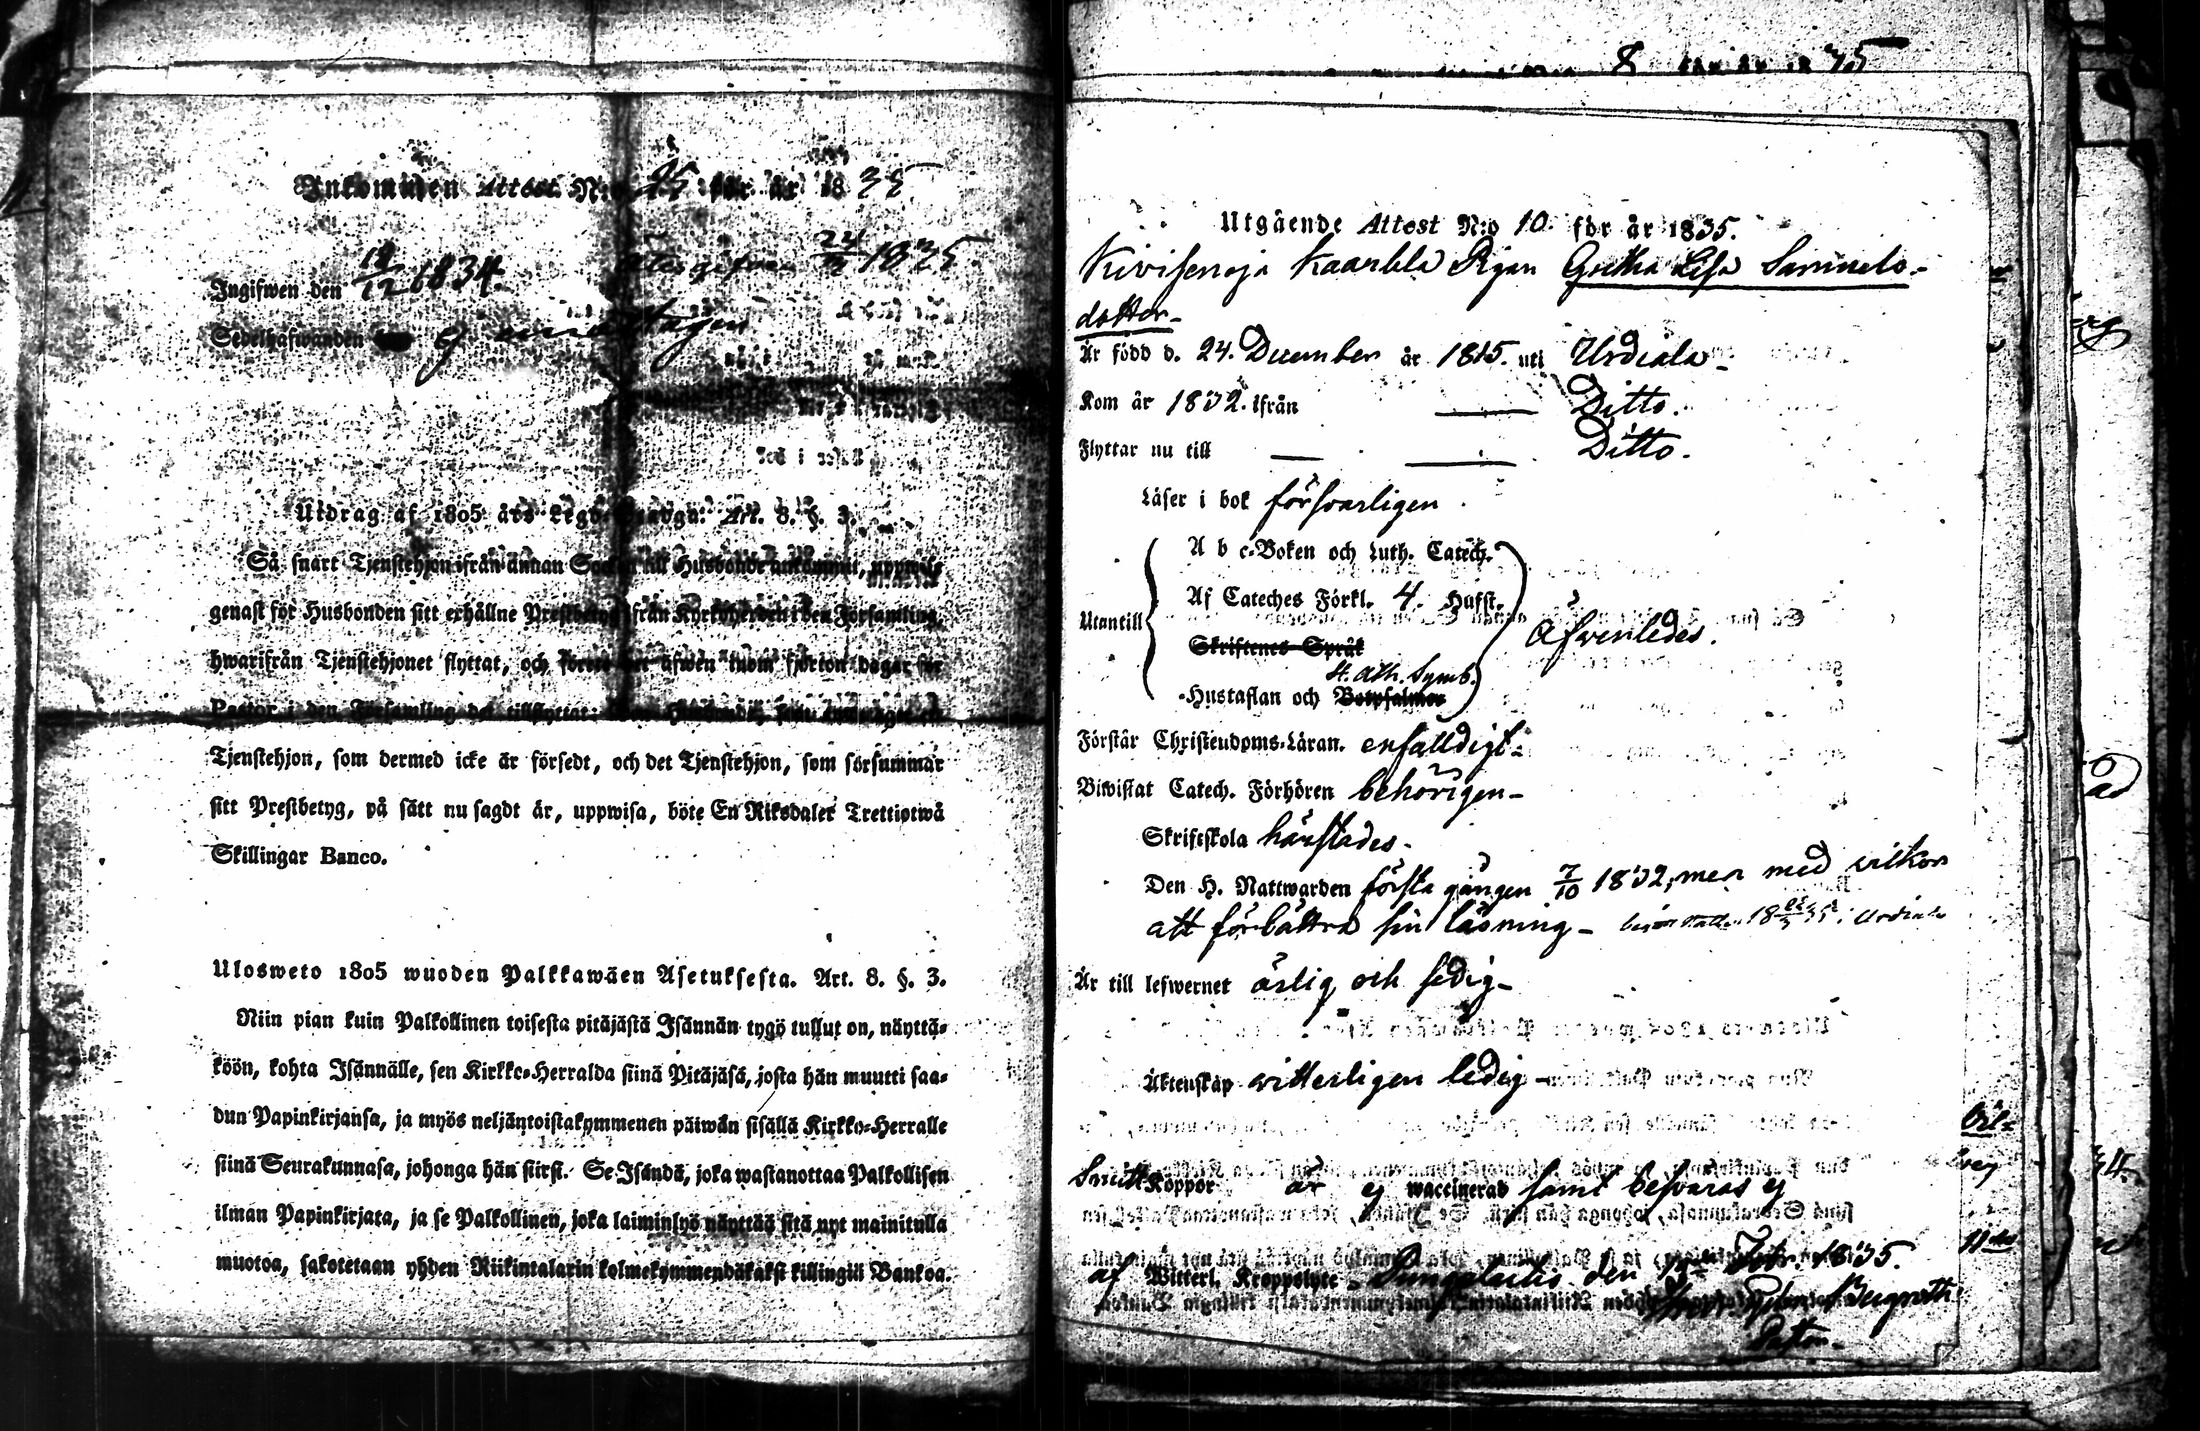 Inkommen Attest N:o 25 för år 1835
Ingifwen den 19/12 1834. Återgifven 24/12 1835.
Sedelhafwanden ej emottagen
Utdrag af 1805 års Art. 8. §. 3.
Så snart Tjenstehjon ifrån annan till Husbonde ankommit, uppwise
genast för Husbonden sitt erhållne Prestbetyg ifrån Kyrkoherden i den Församling,
hwarifrån Tjenstehjonet flyttat, och förete det äfwen inom fjorton dagar för
Pastor i den Församling det tillflyttat;
Tjenstehjon, som dermed icke är försedt, och det Tjenstehjon, som försummar
sitt Prestbetyg, på sätt nu sagdt är, uppwisa, böte En Riksdaler Trettiotwå
Skillingar Banco.
Ulosweto 1805 wuoden Palkkawäen Asetuksesta. Art. 8. §. 3.
Niin pian kuin Palkollinen toisesta pitäjästä Isännän tygö tullut on, näyttä-
köön, kohta Isännälle, sen Kirkko-Herralda siinä Pitäjäsä, josta hän muutti saa-
dun Papinkirjansa, ja myös neljäntoistakymmenen päiwän sisällä Kirkko-Herralle
siinä Seurakunnasa, johonga hän siirsi. Se Isändä, joka wastanottaa Palkollisen
ilman Papinkirjata, ja se Palkollinen, joka laiminlyö näyttää sitä nyt mainitulla
muotoa, sakotetaan yhden Riikintalarin kolmekymmendäkaksi killingiä Bankoa.
8 för år 1835
Utgående Attest N:o 10. för år 1835.
Kivisenoja Kaarlela Pigan Gretha Lisa Samuels-
dotter-
Är född d. 24. December år 1815. uti Urdiala-
Kom år 1832. ifrån — Ditto.
Flyttar nu till — — Ditto.
Läser i bok försvarligen.
A b c-Boken och Luth. Catech.
Af Cateches Förkl. 4. Hufst.
Utantill Äfvenledes.
Skriftenes Språk
St. Ath. Symb.
Hustaflan och Botpsalmer
Förstår Christendoms-Läran. enfaldigt-
Biwistat Catech. Förhören behörigen-
Skriftskola härstädes-
Den H. Nattwarden första gången 7/10 1832, men med vilkor
att förbättra sin läsning- Urdiala
Är till lefwernet ärlig och sedig-
Äktenskap vitterligen ledig-
Smitt Koppor är ej waccinerad samt besvaras ej
af Witterl. Kroppslyte- Pungelaitis den Febr. 1835.
Bergroth
Pastor-